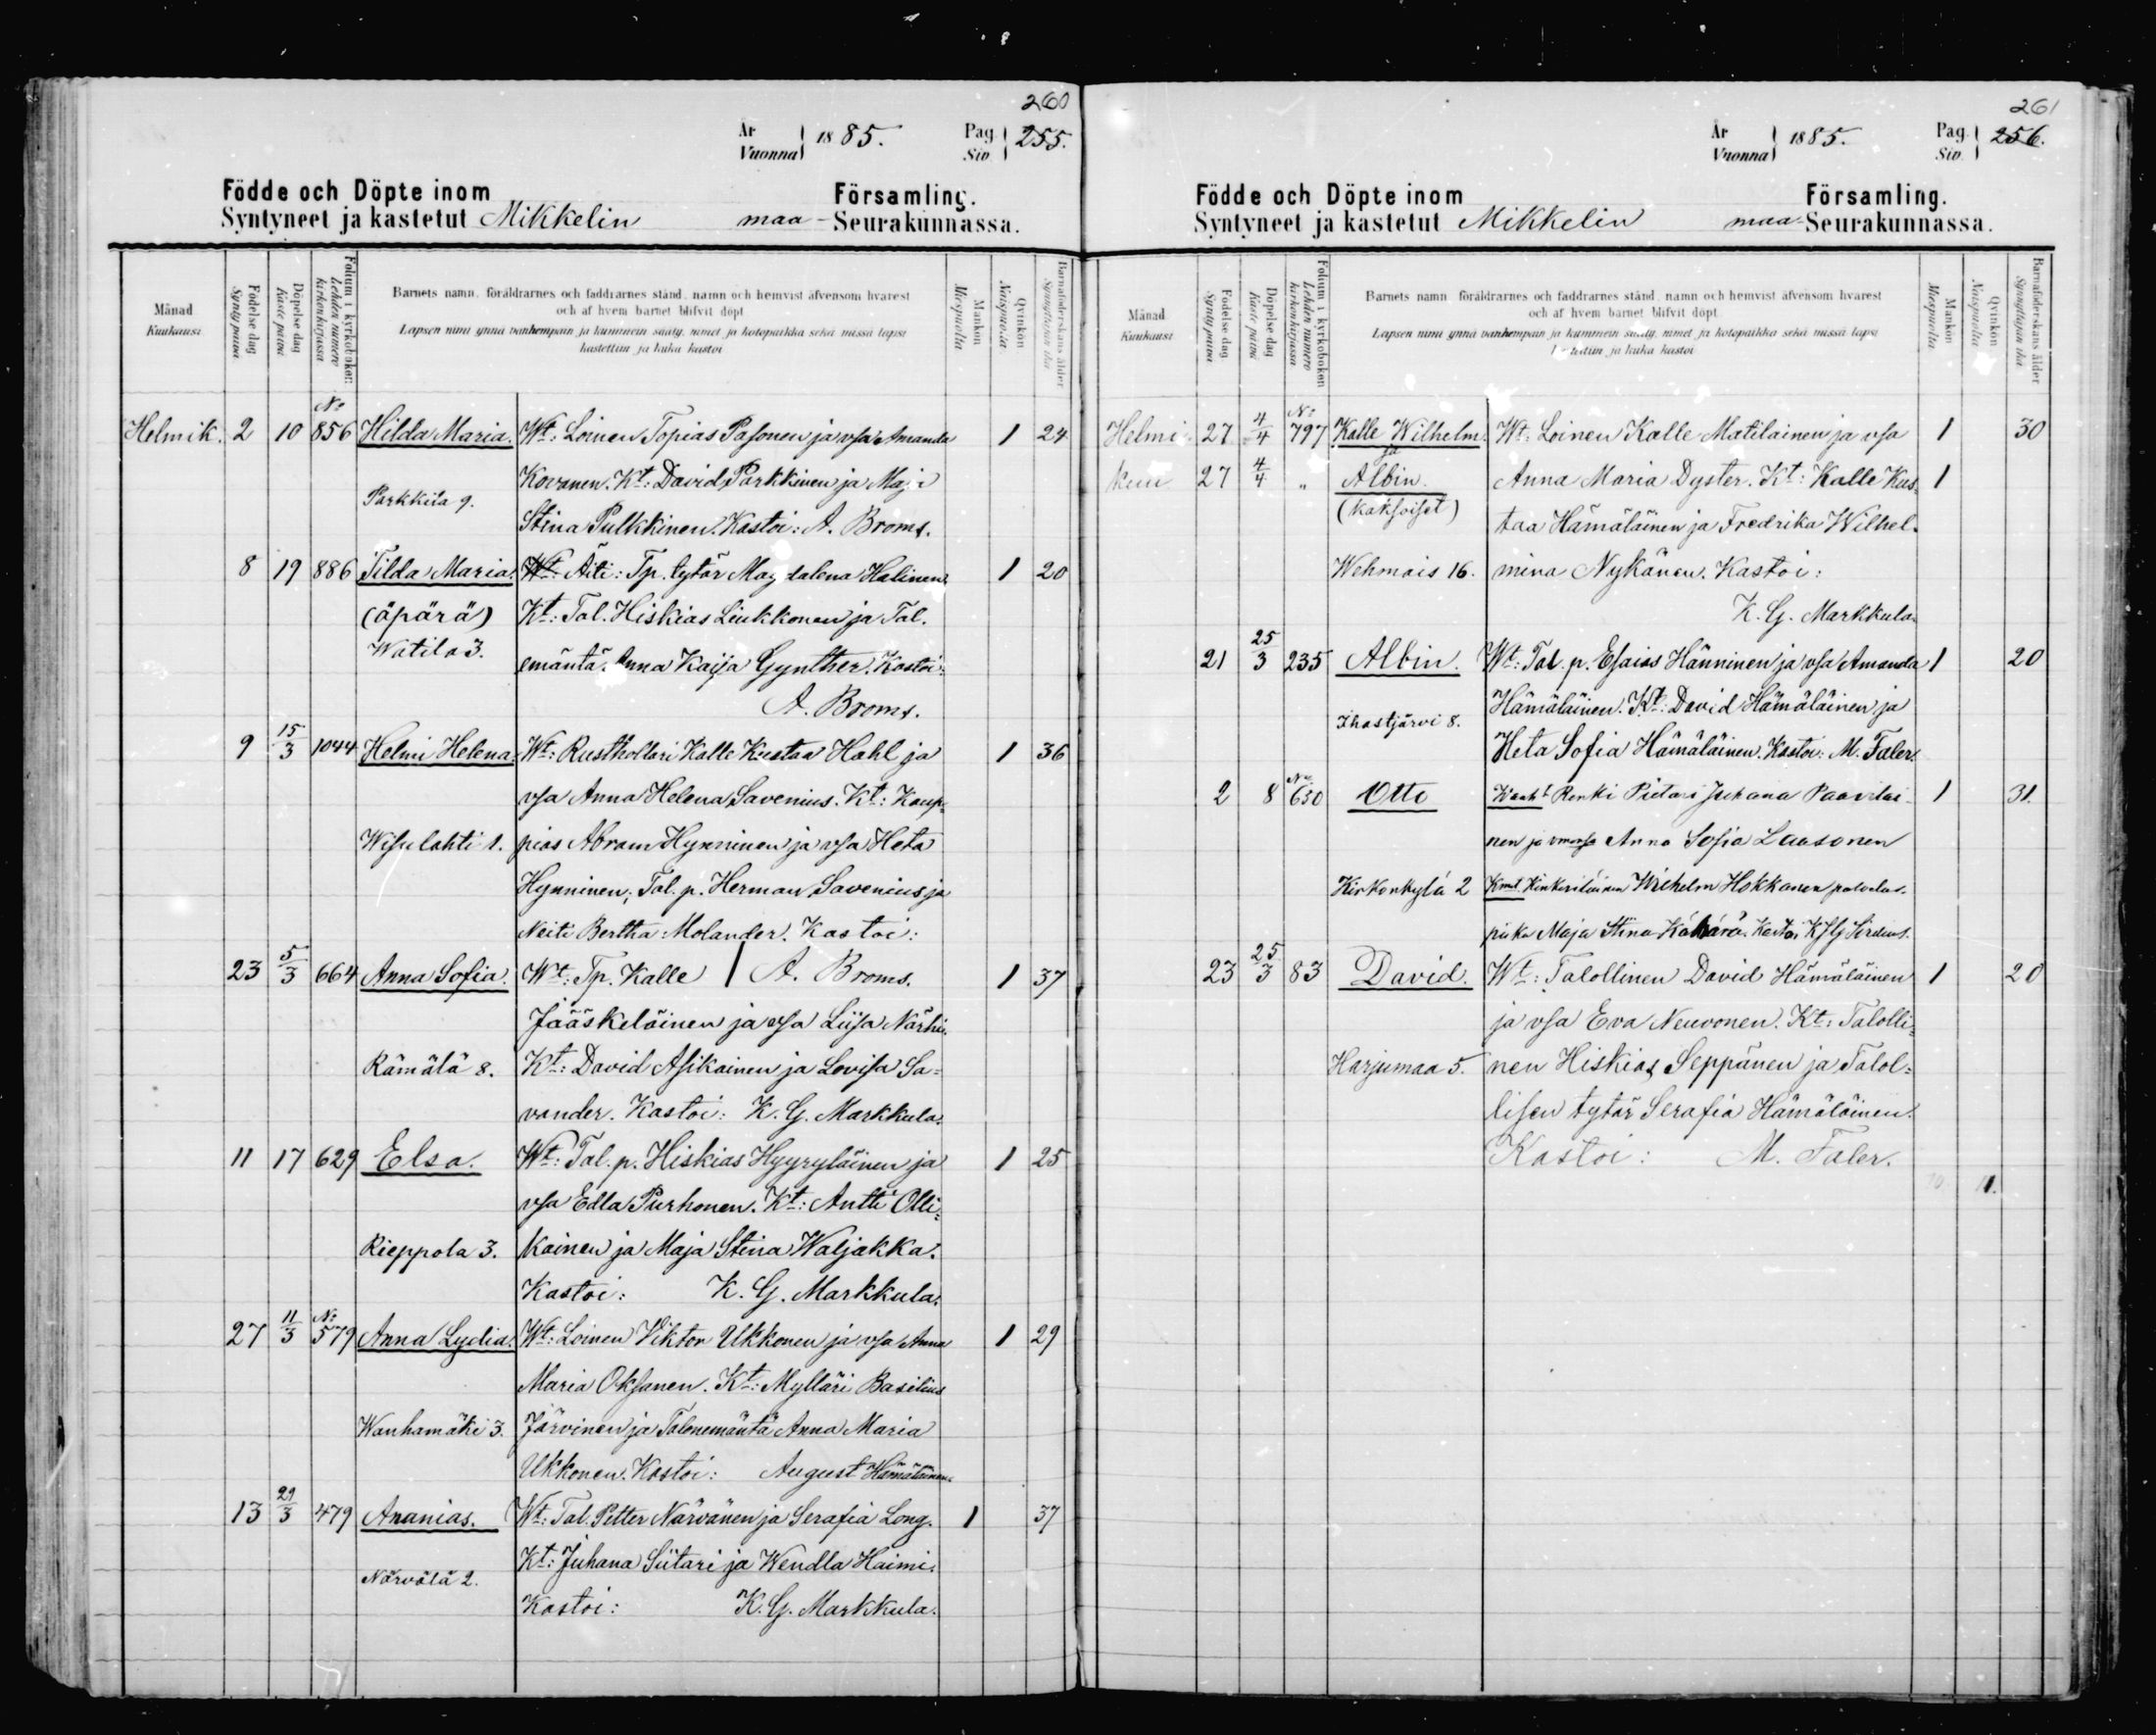 260
År
Vuonna
1885.
Pag.
Siv.
255.
Födde och Döpte inom Församling.
Syntyneet ja kastetut Mikkelin maa-Seurakunnassa.
Månad
Kuukausi
Födelse dag
Synty päivä
Döpelse dag
Kaste päivä
Folium i kyrkoboken:
Lehden numero
kirkonkirjassa
Barnets namn, föräldrarnes och faddrarnes stånd, namn och hemvist äfvensom hvarest
och af hvem barnet blifvit döpt
Lapsen nimi ynnä vanhempain ja kummein sääty, nimet ja kotopaikka sekä missä lapsi
kastettiin ja kuka kastoi
Mankön
Miespuolia
Qvinkön
Naispuolia
Barnaföderskans ålder
Synnyttäjän ikä
Helmik. 2 10 No 856 Hilda Maria. Wt: Loinen Topias Pasonen ja vsa Amanda 1 24
Kovanen. Kt: David Parkkinen ja Maja
Parkkila 9.
Stina Pulkkinen. Kastoi: A. Broms.
8 19 886 Tilda Maria. Wt: Äiti: Tp. tytär Magdalena Halinen. 1 20
(äpärä) Kt: Tal. Hiskias Liukkonen ja Tal.
Watila 3. emäntä. Anna Kaisa Gynther. Kastoi:
A. Broms.
9 15/3 1044 Helmi Helena. Wt: Rusthollari Kalle Kustaa Hahl ja 1 36
vsa Anna Helena Savenius. Kt: Kaup-
Wisulahti 1. pias Abram Hynninen ja vsa Heta
Hynninen, Tal. p. Herman Savenius ja
Neiti Bertha Molander. Kastoi:
23 5/3 664 Anna Sofia. Wt: Tp. Kalle | A. Broms. 1 37
Jääskeläinen ja vsa Liisa Närhi.
Rämälä 8. Kt: David Asikainen ja Lovisa Sa=
vander. Kastoi: K. G. Markkula.
11 17 629 Elsa. Wt: Tal. p. Hiskias Hyyryläinen ja 1 25
vsa Edla Purhonen. Kt: Antti Olli=
Rieppola 3. kainen ja Maja Stina Waljakka.
Kastoi: K. G. Markkula.
27 11/3 No 579 Anna Lydia. Wt: Loinen Viktor Ukkonen ja vsa Anna 1 29
Maria Oksanen. Kt: Mylläri Basilius
Wanhamäki 3. Järvinen ja Talonemäntä Anna Maria
Ukkonen. Kastoi: August Hämäläinen.
13 29/3 479 Ananias. Wt: Tal. Petter Närvänen ja Serafia Long. 1 37
Kt: Juhana Siitari ja Wendla Haimi.
Närvälä 2.
Kastoi: K. G. Markkula.
261
År
Vuonna
1885.
Pag.
Siv.
256.
Födde och Döpte inom Församling.
Syntyneet ja kastetut Mikkelin maa-Seurakunnassa.
Månad
Kuukausi
Födelse dag
Synty päivä
Döpelse dag
Kaste päivä
Folium i kyrkoboken:
Lehden numero
kirkonkirjassa
Barnets namn, föräldrarnes och faddrarnes stånd, namn och hemvist äfvensom hvarest
och af hvem barnet blifvit döpt
Lapsen nimi ynnä vanhempain ja kummein sääty, nimet ja kotopaikka sekä missä lapsi
kastettiin ja kuka kastoi
Mankön
Miespuolia
Qvinkön
Naispuolia
Barnaföderskans ålder
Synnyttäjän ikä
Helmi- 27 4/4 No 797 Kalle Wilhelm. Wt: Loinen Kalle Matilainen ja vsa 1 30
ja
kuu 27 4/4 " Albin. Anna Maria Dyster. Kt: Kalle Kus- 1
(kaksoiset) taa Hämäläinen ja Fredrika Wilhel-
Wehmais 16. mina Nykänen. Kastoi:
K. G. Markkula.
21 25/3 235 Albin. Wt: Tal. p. Esaias Hänninen ja vsa Amanda 1 20
Hämäläinen. Kt: David Hämäläinen ja
Ihastjärvi 8.
Heta Sofia Hämäläinen. Kastoi: M. Faler.
2 8 No 650 Otto Wanht Renki Pietari Juhana Paavilai- 1 31.
nen ja vmonsa Anna Sofia Laasonen
Kirkonkylä 2 Wilhelm Hokkanen palvelus-
piika Maja Stina Kähärä. Kastoi
23 25/3 83 David. Wt: Talollinen David Hämäläinen 1 20
ja vsa Eva Neuvonen. Kt: Talolli=
Harjumaa 5. nen Hiskias Seppänen ja Talol=
lisen tytär Serafia Hämäläinen.
Kastoi: M. Faler.
10 11.